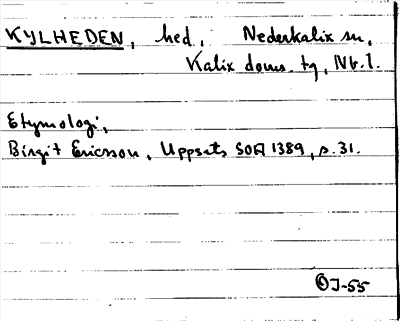 KYLHEDEN, hed, Nederkalix sn,
Kalix doms. tg, Nb. l.
Etymologi,
Birgit Ericsson, Uppsats SOA 1389, s. 31.
OJ-55